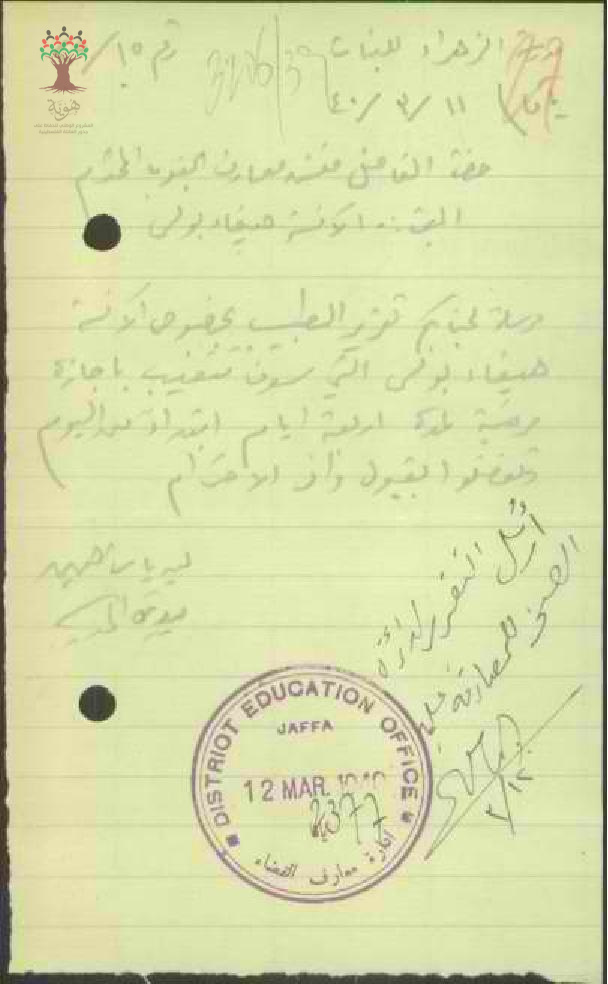 الزهراء للبنات
رقم ١٥/
يافا ١١/٣/٤٠
هوية
حضرة الفاضل مفتش معارف الجنوب المحترم
الآنسة هيفاء بولس
لجنابكم تقرير الطبيب بخصوص الآنسة
هيفاء بولس التي سوف تتغيب باجازة
مرضية لمدة اربعة ايام ابتداءً من اليوم
وتفضلوا بقبول وافر الاحترام
مديرة المدرسة
أرسل التقرير لدائرة
الصحة للمصادقة عليه
١٢/٣
DISTRICT EDUCATION OFFICE
JAFFA
12 MAR. 1940
2377
ادارة معارف القضاء